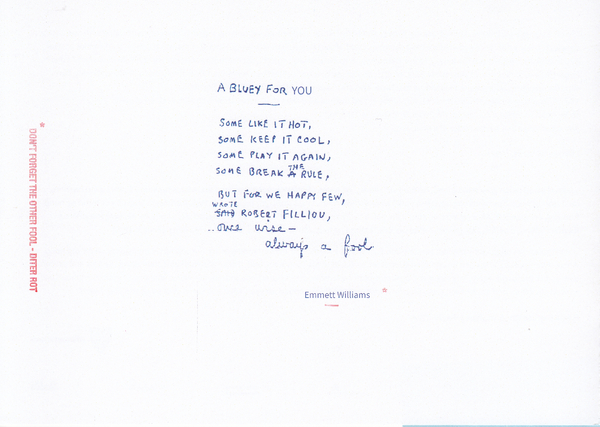 A BLUEY FOR YOU
SOME LIKE IT HOT,
SOME KEEP IT COOL,
SOME PLAY IT AGAIN,
SOME BREAK A THE RULE,
BUT FOR WE HAPPY FEW,
WROTE
SAID ROBERT FILLIOU,
..once wise —
always a fool.
Emmett Williams *
* DON'T FORGET THE OTHER FOOL - DITER ROT